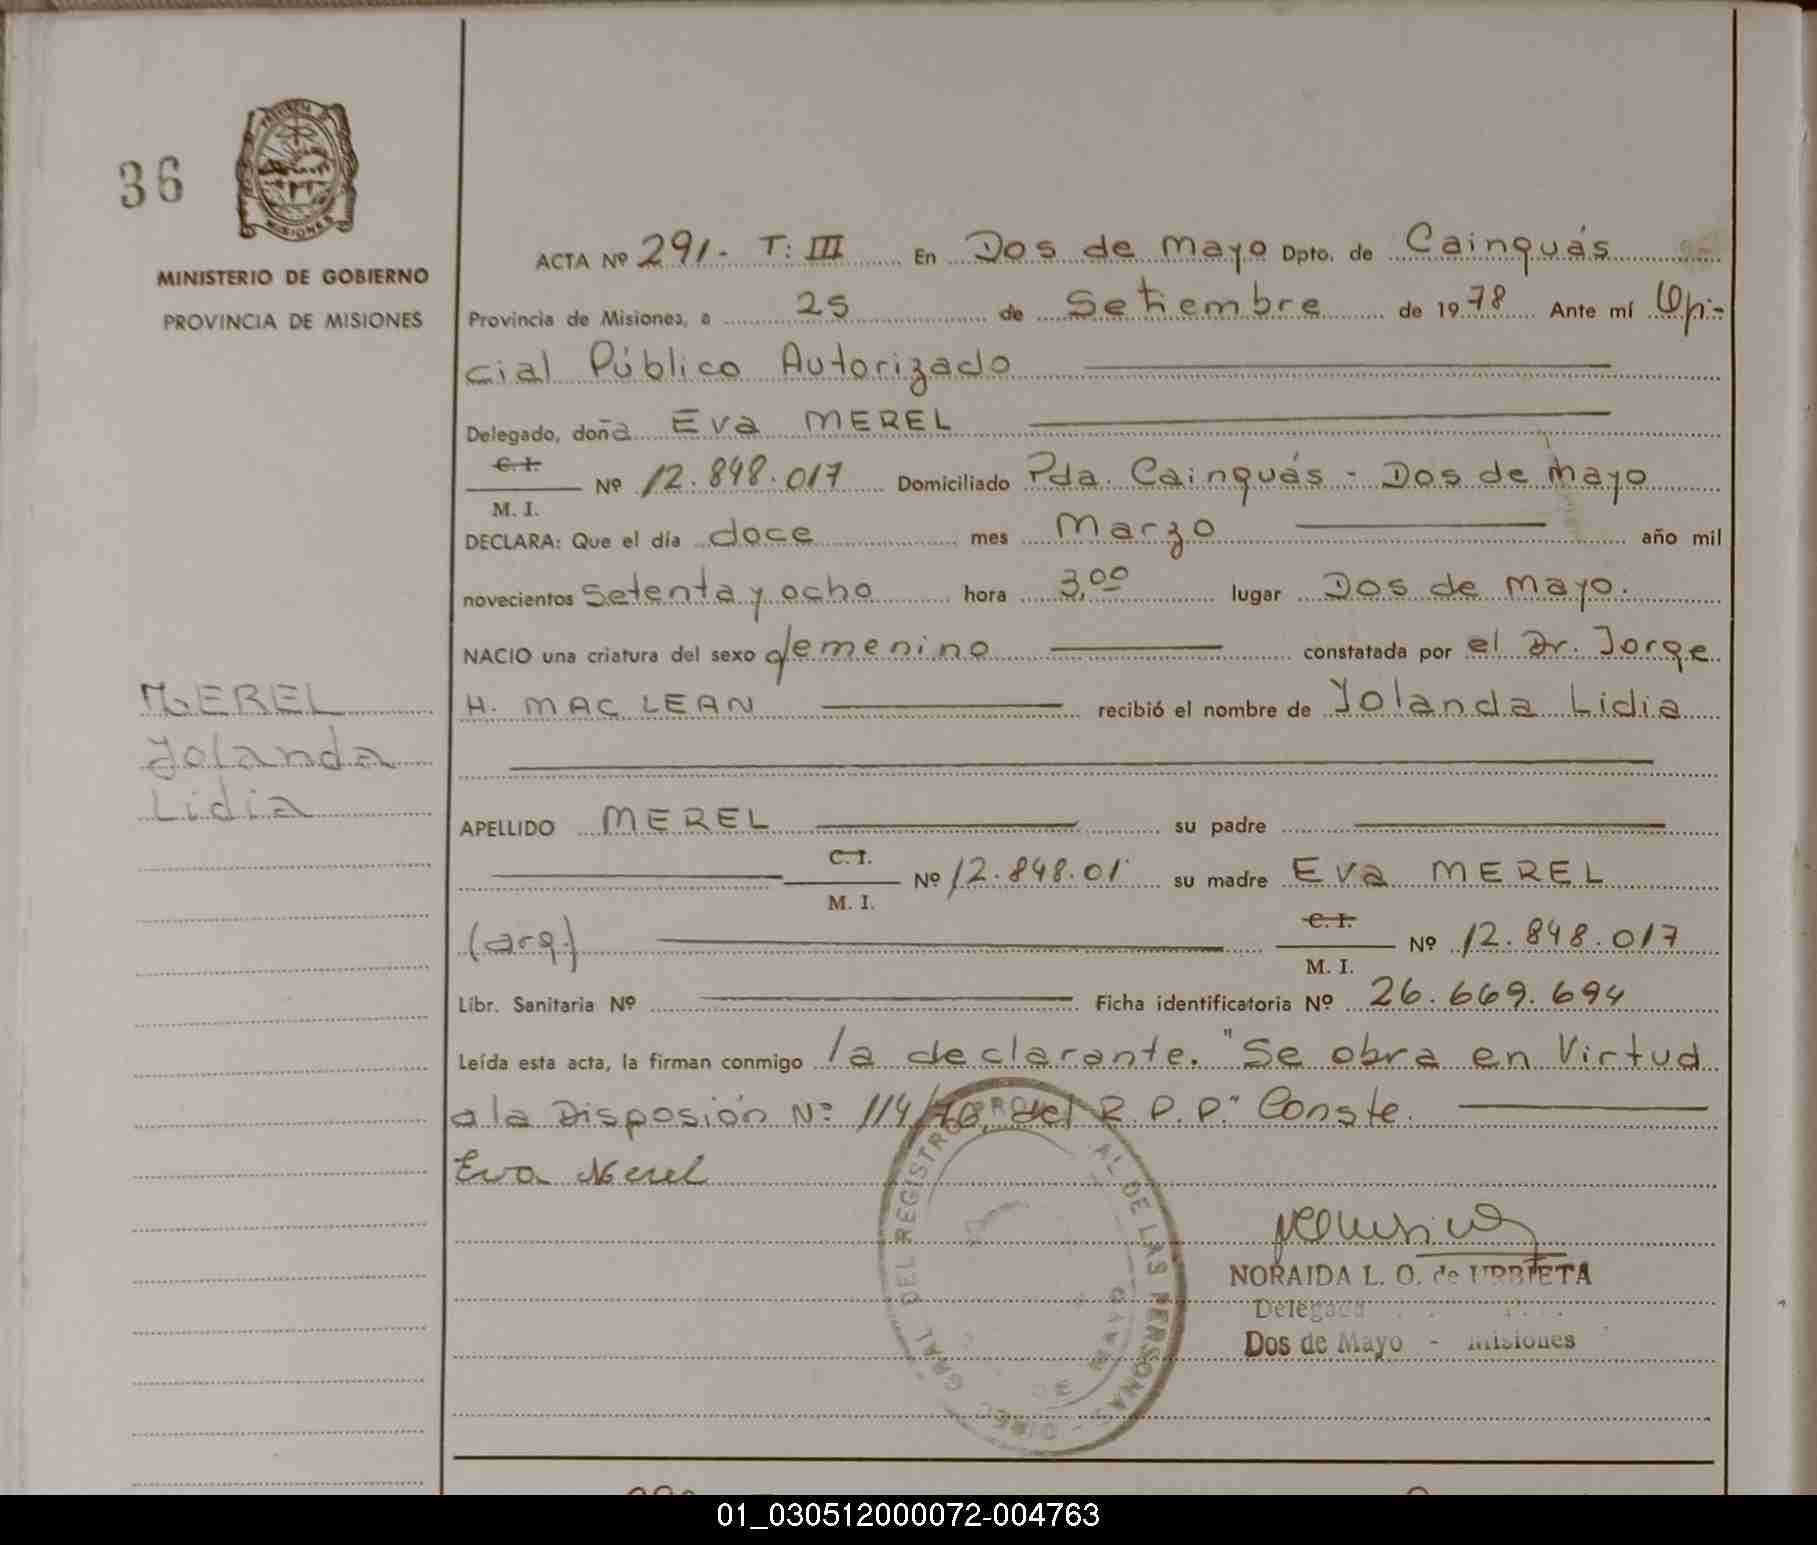 36
MISIONES
MINISTERIO DE GOBIERNO
PROVINCIA DE MISIONES
MEREL
Yolanda
Lidia
ACTA Nº 291- T: III En Dos de Mayo Dpto. de Cainguás
Provincia de Misiones, a 25 de Setiembre de 1978 Ante mí Ofi-
cial Público Autorizado
Delegado, doña Eva MEREL
C. I.
M. I. Nº 12.848.017 Domiciliado Pda. Cainguás - Dos de Mayo
DECLARA: Que el día doce mes Marzo año mil
novecientos Setenta y ocho hora 3,00 lugar Dos de Mayo.
NACIO una criatura del sexo femenino constatada por el Dr. Jorge
H. MAC LEAN recibió el nombre de Yolanda Lidia
APELLIDO MEREL su padre
C. I.
M. I. Nº 12.848.01 su madre Eva MEREL
(arg.) C. I.
M. I. Nº 12.848.017
Libr. Sanitaria Nº Ficha identificatoria Nº 26.669.694
Leída esta acta, la firman conmigo la declarante. "Se obra en Virtud
a la Disposión Nº 114/78, del R.P.P." Conste.
Eva Merel
DIREC GRAL DEL REGISTRO PROV AL DE LAS PERSONAS
NORAIDA L. O. de URBIETA
Delegada
Dos de Mayo - Misiones
01_030512000072-004763